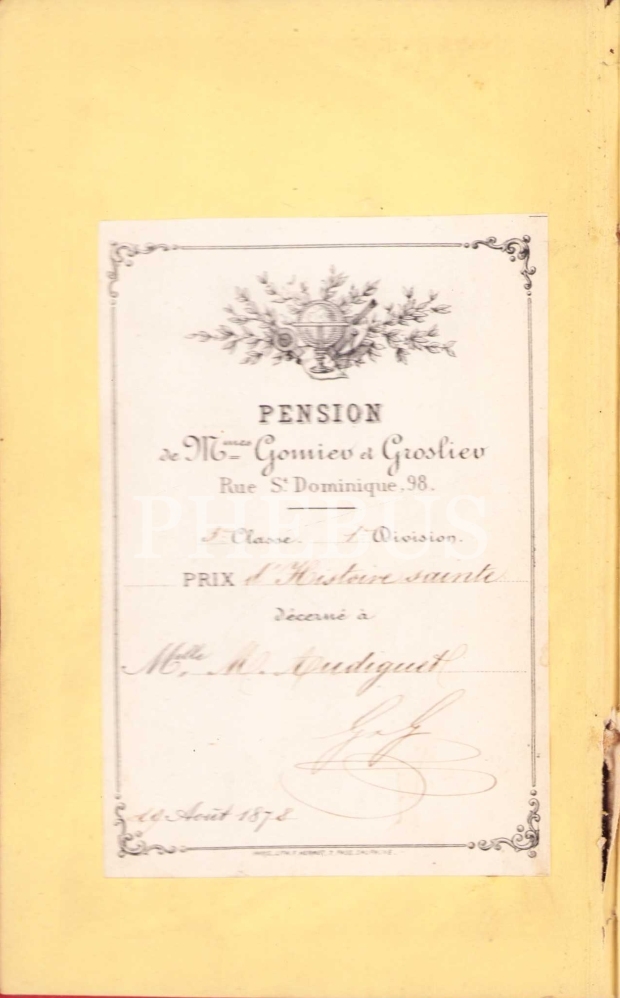 PENSION
de Mmes Gomiev et Grosliev
Rue St Dominique, 98.
PHEBUS
Classe. 1e Division.
PRIX d'Histoire sainte
décerné à
Melle M. Audiguet
G & G
19 Août 1878